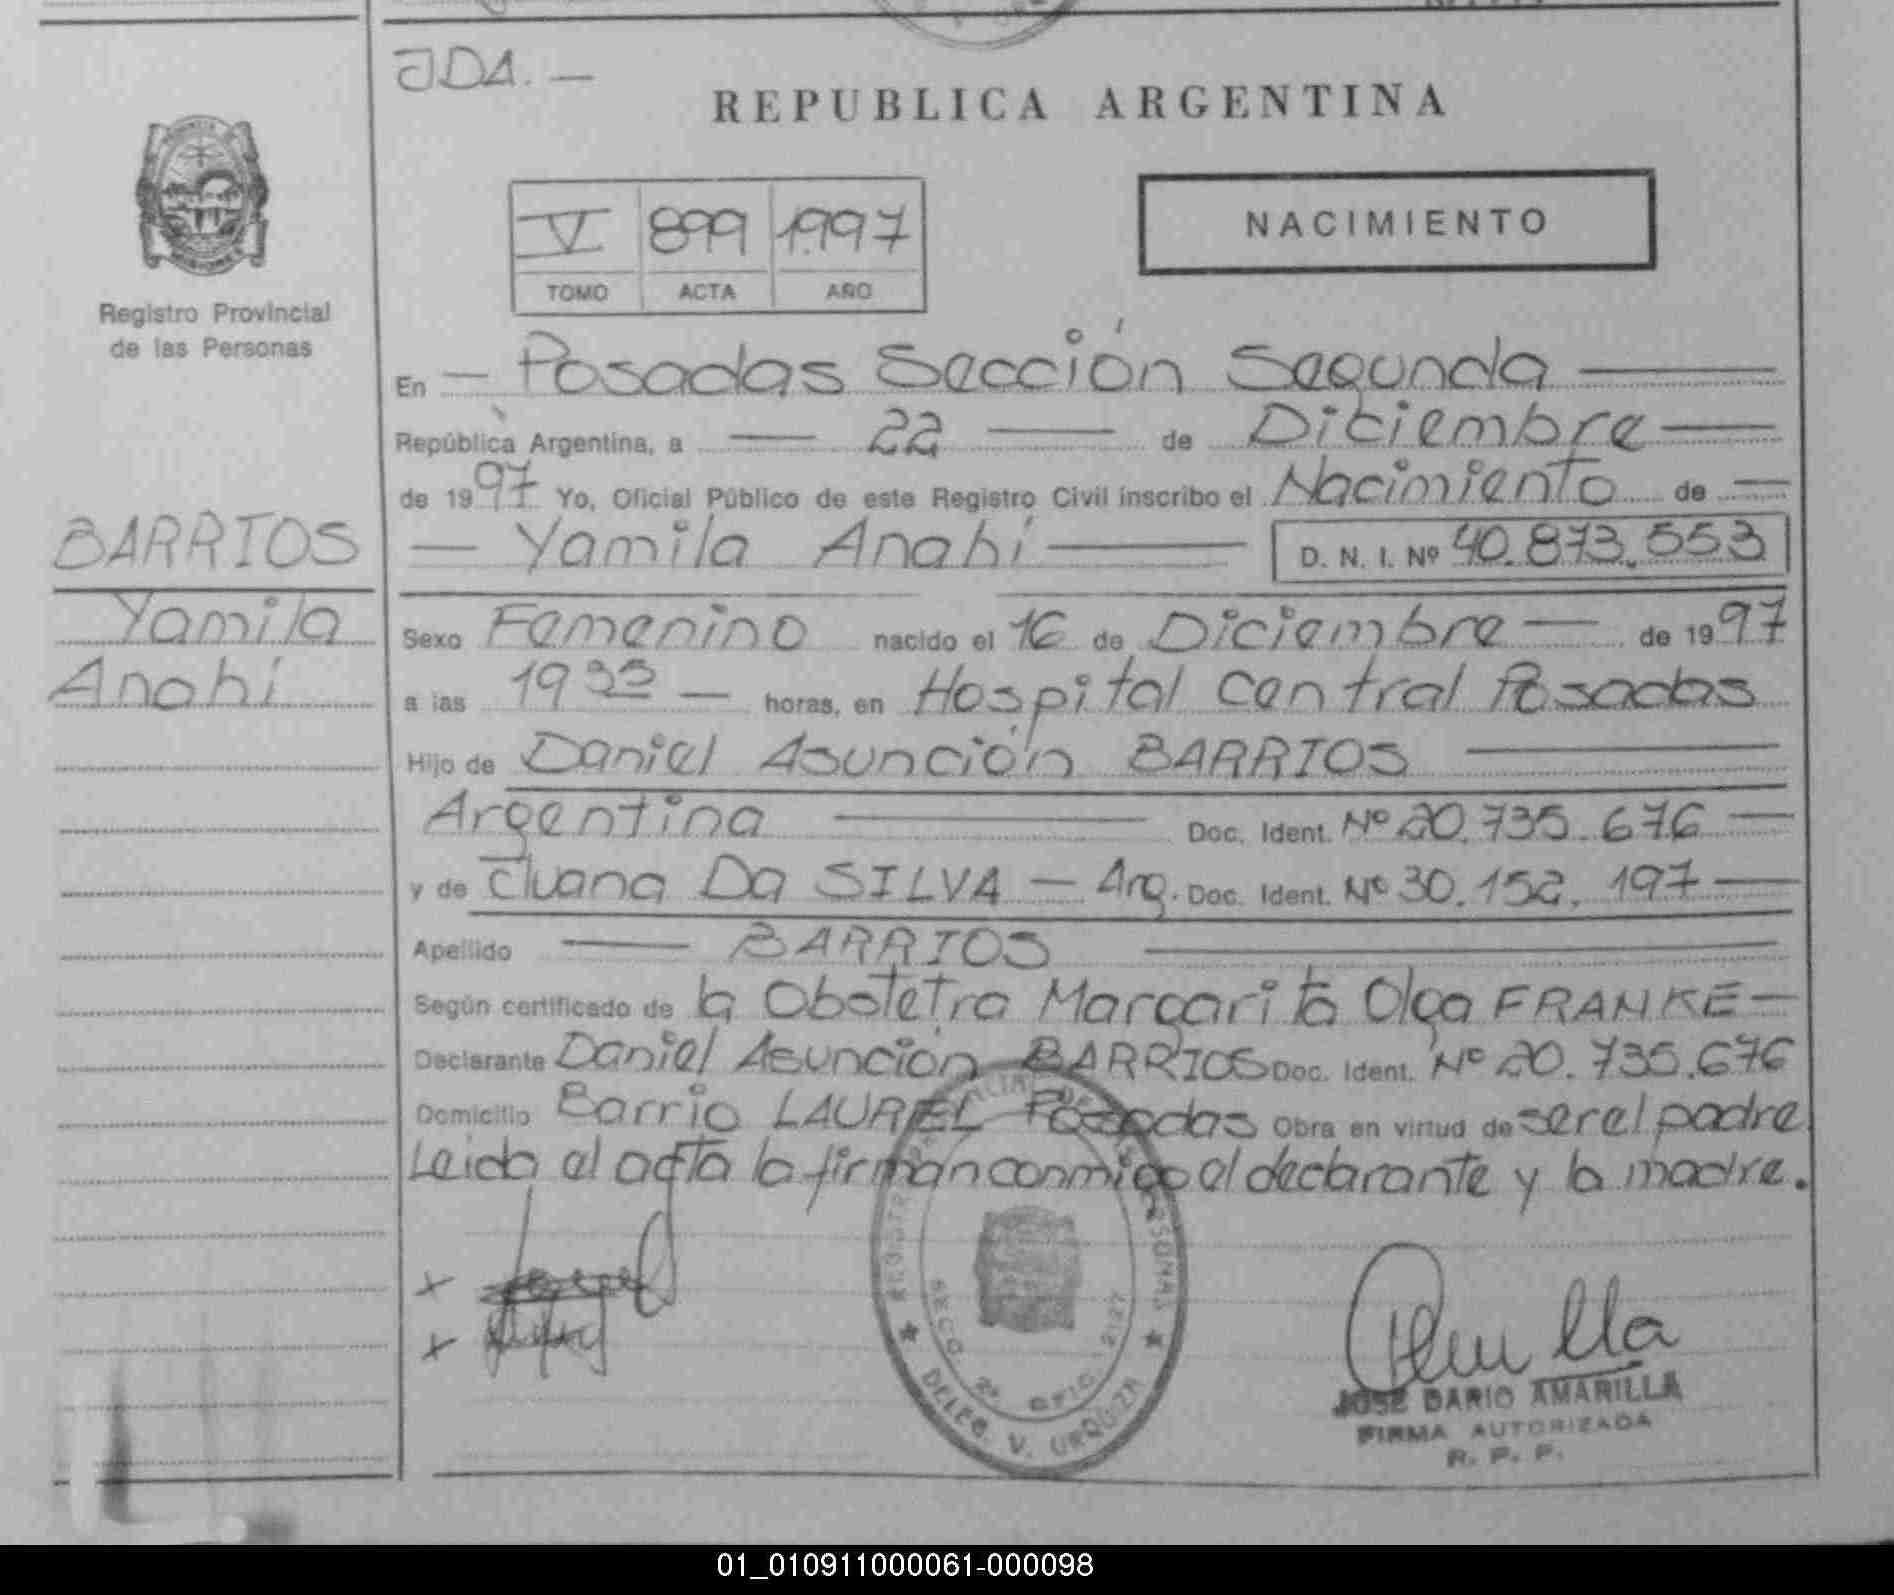 JDA. —
REPUBLICA ARGENTINA
V 899 1.997
TOMO ACTA AÑO
NACIMIENTO
Registro Provincial
de las Personas
BARRIOS
Yamila
Anahí
En — Posadas Sección Segunda —
República Argentina, a — 22 — de Diciembre —
de 1997 Yo, Oficial Público de este Registro Civil inscribo el Nacimiento de —
— Yamila Anahí — D. N. I. Nº 40.873.553
Sexo Femenino nacido el 16 de Diciembre — de 1997
a las 19 35 — horas, en Hospital Central Posadas
Hijo de Daniel Asunción BARRIOS —
Argentina — Doc. Ident. Nº 20.735.676 —
y de Juana Da SILVA — Arg. Doc. Ident. Nº 30.152.197 —
Apellido — BARRIOS —
Según certificado de la Obstetra Margarita Olga FRANKE —
Declarante Daniel Asunción BARRIOS Doc. Ident. Nº 20.735.676
Domicilio Barrio LAUREL Posadas Obra en virtud de ser el padre
Leida el acta la firman conmigo el declarante y la madre.
SECC. 2ª OFIC.
DELEG. V. URQUIZA
JOSE DARIO AMARILLA
FIRMA AUTORIZADA
R. P. P.
01_010911000061-000098